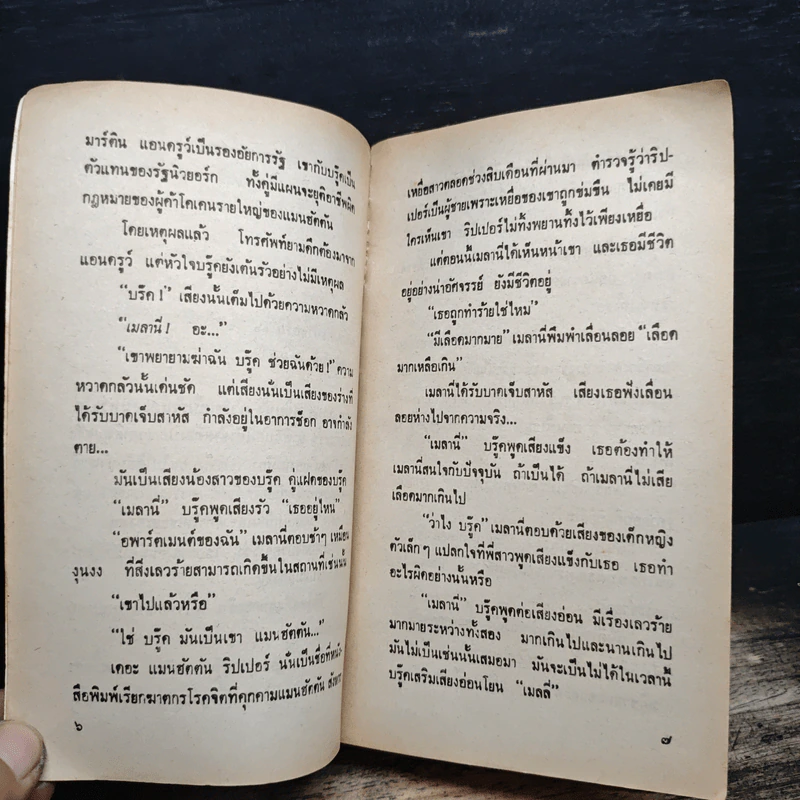 มาร์ติน แอนดรูว์เป็นรองอัยการรัฐ เขากับบรู๊คเป็น
ตัวแทนของรัฐนิวยอร์ก ทั้งคู่มีแผนจะยุติอาชีพผิด
กฎหมายของผู้ค้าโคเคนรายใหญ่ของแมนฮัตตัน
โดยเหตุผลแล้ว โทรศัพท์ยามดึกต้องมาจาก
แอนดรูว์ แต่หัวใจบรู๊คยังเต้นรัวอย่างไม่มีเหตุผล
“บรู๊ค!” เสียงนั้นเต็มไปด้วยความหวาดกลัว
“เมลานี่! อะ...”
“เขาพยายามฆ่าฉัน บรู๊ค ช่วยฉันด้วย!” ความ
หวาดกลัวนั้นเด่นชัด แต่เสียงนั่นเป็นเสียงของร่างที่
ได้รับบาดเจ็บสาหัส กำลังอยู่ในอาการช็อก อาจกำลัง
ตาย...
มันเป็นเสียงน้องสาวของบรู๊ค คู่แฝดของบรู๊ค
“เมลานี่” บรู๊คพูดเสียงรัว “เธออยู่ไหน”
“อพาร์ตเมนต์ของฉัน” เมลานี่ตอบช้าๆ เหมือน
งุนงง ที่สิ่งเลวร้ายสามารถเกิดขึ้นในสถานที่เช่นนั้น
“เขาไปแล้วหรือ”
“ใช่ บรู๊ค มันเป็นเขา แมนฮัตตัน...”
เดอะ แมนฮัตตัน ริปเปอร์ นั่นเป็นชื่อที่หนัง-
สือพิมพ์เรียกฆาตกรโรคจิตที่คุกคามแมนฮัตตัน สังหาร
๖
เหยื่อสาวตลอดช่วงสิบเดือนที่ผ่านมา ตำรวจรู้ว่าริป-
เปอร์เป็นผู้ชายเพราะเหยื่อของเขาถูกข่มขืน ไม่เคยมี
ใครเห็นเขา ริปเปอร์ไม่ทิ้งพยานทิ้งไว้เพียงเหยื่อ
แต่ตอนนี้เมลานี่ได้เห็นหน้าเขา และเธอมีชีวิต
อยู่อย่างน่าอัศจรรย์ ยังมีชีวิตอยู่
“เธอถูกทำร้ายใช่ไหม”
“มีเลือดมากมาย” เมลานี่พึมพำเลื่อนลอย “เลือด
มากเหลือเกิน”
เมลานี่ได้รับบาดเจ็บสาหัส เสียงเธอฟังเลื่อน
ลอยห่างไปจากความจริง...
“เมลานี่” บรู๊คพูดเสียงแข็ง เธอต้องทำให้
เมลานี่สนใจกับปัจจุบัน ถ้าเป็นได้ ถ้าเมลานี่ไม่เสีย
เลือดมากเกินไป
“ว่าไง บรู๊ค” เมลานี่ตอบด้วยเสียงของเด็กหญิง
ตัวเล็กๆ แปลกใจที่พี่สาวพูดเสียงแข็งกับเธอ เธอทำ
อะไรผิดอย่างนั้นหรือ
“เมลานี่” บรู๊คพูดต่อเสียงอ่อน มีเรื่องเลวร้าย
มากมายระหว่างทั้งสอง มากเกินไปและนานเกินไป
มันไม่เป็นเช่นนั้นเสมอมา มันจะเป็นไม่ได้ในเวลานี้
บรู๊คเสริมเสียงอ่อนโยน “เมลลี่”
๗